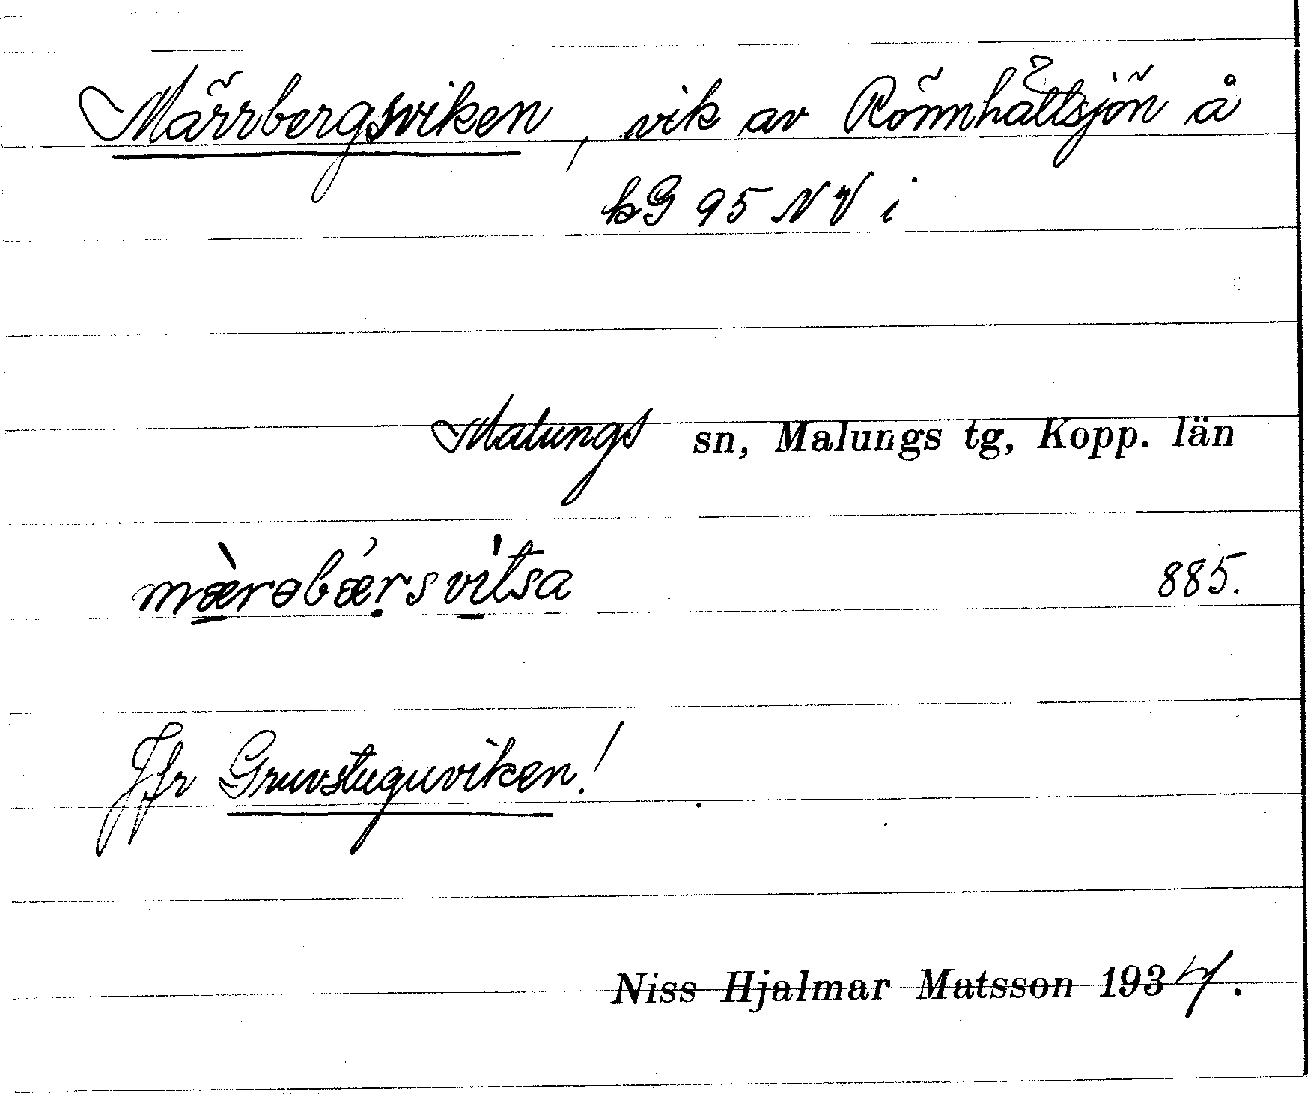 Märrbergsviken, vik av Rönnhåttsjön å
kG 95 NV i
Malungs sn, Malungs tg, Kopp. län
mæ̀rəbǽṛsvi̍tsa 885.
Jfr Gruvstuguviken!
Niss Hjalmar Matsson 1934.